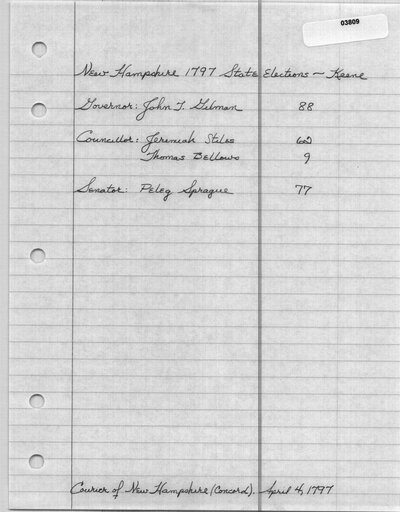 03809
New Hampshire 1797 State Elections ~ Keene
Governor: John T. Gilman 88
Councillor: Jeremiah Stiles
Thomas Bellows 9
Senator: Peleg Sprague 77
Courier of New Hampshire (Concord). April 4, 1797